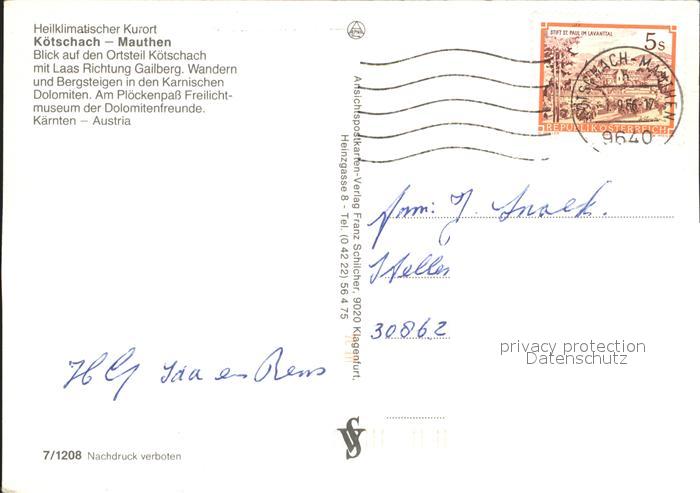 Heilklimatischer Kurort
Kötschach – Mauthen
Blick auf den Ortsteil Kötschach
mit Laas Richtung Gailberg. Wandern
und Bergsteigen in den Karnischen
Dolomiten. Am Plöckenpaß Freilicht-
museum der Dolomitenfreunde.
Kärnten – Austria
STIFT ST. PAUL IM LAVANTTAL
5s
REPUBLIK ÖSTERREICH
KÖTSCHACH-MAUTHEN
9640
Ansichtspostkarten-Verlag Franz Schilcher, 9020 Klagenfurt,
Heinzgasse 8 - Tel. (0 42 22) 56 4 75
Fam: J. Snoek.
30862
privacy protection
Datenschutz
7/1208 Nachdruck verboten